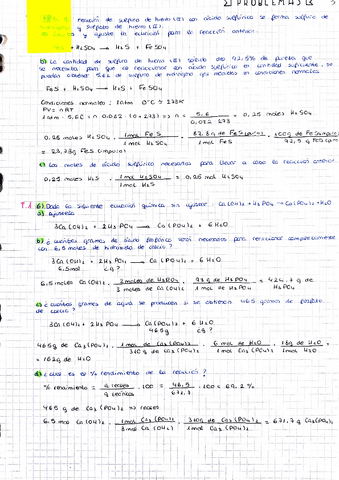 PROBLEMAS
reacción de sulfuro de hierro (II) con ácido sulfúrico se forma sulfuro de
y sulfato de hierro (II).
y ajusta la ecuación para la reacción anterior.
+ H₂SO₄ → H₂S + FeSO₄
b) La cantidad de sulfuro de hierro (II) sólido del 92,5% de pureza que
se necesita para que al reaccionar con ácido sulfúrico en cantidad suficiente, se
puedan obtener 5,6L de sulfuro de hidrógeno gas medidos en condiciones normales.
FeS + H₂SO₄ → H₂S + FeSO₄
Condiciones normales: 1atm 0ºC = 273K
PV = nRT
1atm · 5,6L = n · 0,082 · (0+273) => n = 5,6 / 0,082 · 273 = 0,25 moles H₂SO₄
0,25 moles H₂SO₄ · 1mol FeS / 1mol H₂SO₄ ·
c) Los moles de ácido sulfúrico necesarios para llevar a cabo la reacción anterior.
0,25 moles H₂S · 1mol H₂SO₄ / 1mol H₂S = 0,25 mol H₂SO₄
6) Dada la siguiente ecuación química sin ajustar: Ca(OH)₂ + H₃PO₄ → Ca₃(PO₄)₂ + H₂O
a) Ajústala
3Ca(OH)₂ + 2H₃PO₄ → Ca₃(PO₄)₂ + 6H₂O
b) ¿Cuántos gramos de ácido fosfórico serán necesarios para reaccionar completamente
con 6,5 moles de hidróxido de calcio?
3Ca(OH)₂ + 2H₃PO₄ → Ca₃(PO₄)₂ + 6H₂O
6,5mol ¿g?
6,5 moles Ca(OH)₂ · 2moles de H₃PO₄ / 3 moles de Ca(OH)₂ · 98g de H₃PO₄ / 1mol de H₃PO₄ = 424,7 g de H₃PO₄
c) ¿Cuántos gramos de agua se producen si se obtienen 465 gramos de fosfato
de calcio?
3Ca(OH)₂ + 2H₃PO₄ → Ca₃(PO₄)₂ + 6H₂O
465g ¿g?
465g de Ca₃(PO₄)₂ · 1mol de Ca₃(PO₄)₂ / 310g de Ca₃(PO₄)₂ · 6 mol de H₂O / 1mol de Ca₃(PO₄)₂ · 18g de H₂O / 1mol H₂O =
= 162g de H₂O
d) ¿Cuál es el % rendimiento de la reacción?
% rendimiento = g reales / g teóricos · 100 = · 100 = 69,2%
465 g de Ca₃(PO₄)₂ => reales
6,5 mol Ca(OH)₂ · 1mol Ca₃(PO₄)₂ / 3mol Ca(OH)₂ · 310g de Ca₃(PO₄)₂ / 1mol Ca₃(PO₄)₂ = 671,7 g Ca₃(PO₄)₂